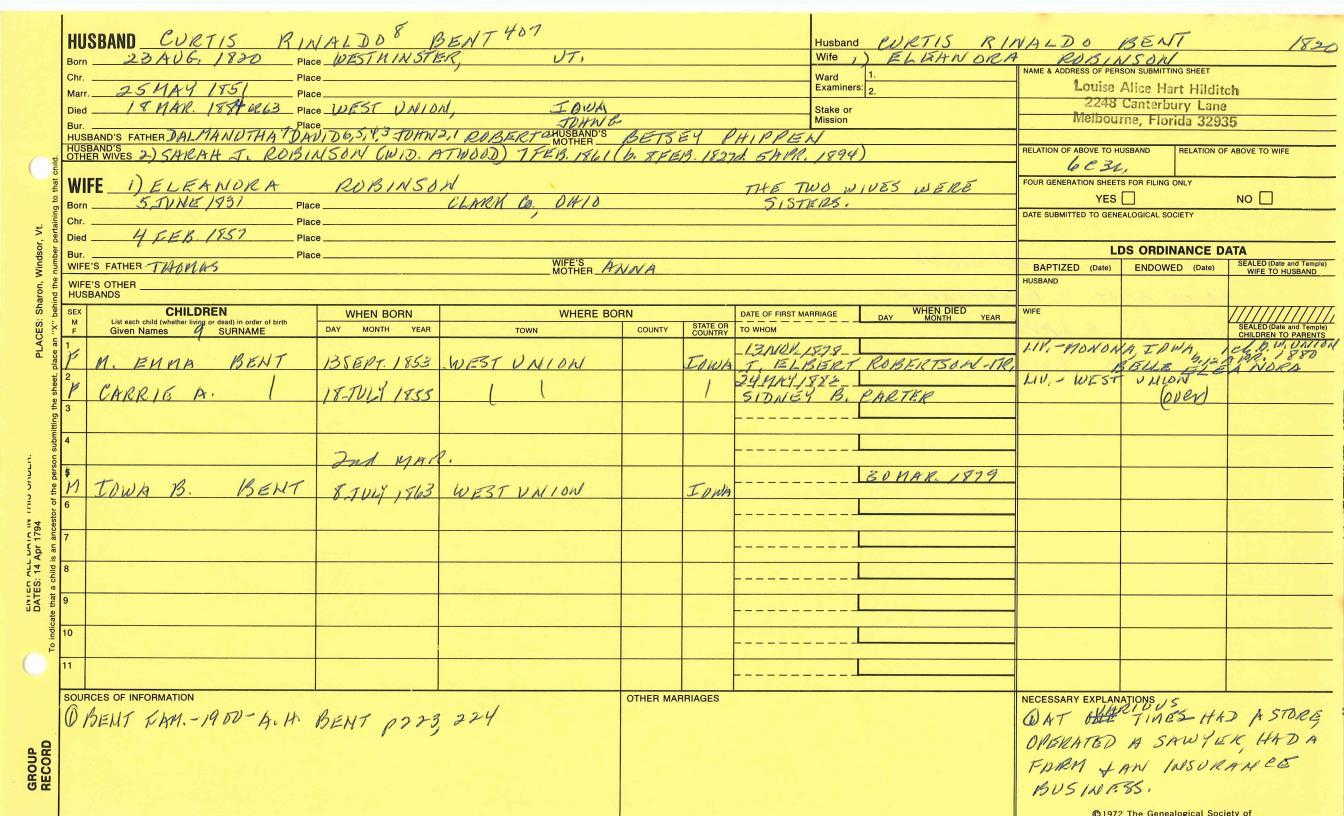 HUSBAND CURTIS RINALDO 8 BENT 407
Born 23 AUG. 1820 Place WESTMINSTER, VT.
Chr. Place
Marr. 25 MAY 1851 Place
Died 18 MAR. Place WEST UNION, IOWA
Bur. Place
HUSBAND'S FATHER DALMANUTHA 7 DAVID 6,5,4,3 JOHN 2,1 ROBERT HUSBAND'S MOTHER BETSEY PHIPPEN
HUSBAND'S OTHER WIVES 2) SARAH J. ROBINSON (WID. ATWOOD) 7 FEB. 1861 (b. 8 FEB. 1827 d. 5 APR. 1894)
Husband CURTIS RINALDO BENT 1820
Wife 1) ELEANDRA ROBINSON
Ward Examiners: 1.
2.
Stake or Mission
NAME & ADDRESS OF PERSON SUBMITTING SHEET
Louise Alice Hart Hilditch
2248 Canterbury Lane
Melbourne, Florida 32935
RELATION OF ABOVE TO HUSBAND RELATION OF ABOVE TO WIFE
6C3R.
FOUR GENERATION SHEETS FOR FILING ONLY
YES NO
DATE SUBMITTED TO GENEALOGICAL SOCIETY
WIFE 1) ELEANDRA ROBINSON THE TWO WIVES WERE
SISTERS.
Born 5 JUNE 1831 Place CLARK Co., OHIO
Chr. Place
Died 4 FEB. 1857 Place
Bur. Place
WIFE'S FATHER THOMAS WIFE'S MOTHER ANNA
WIFE'S OTHER HUSBANDS
LDS ORDINANCE DATA
BAPTIZED (Date) ENDOWED (Date) SEALED (Date and Temple) WIFE TO HUSBAND
HUSBAND
WIFE
SEALED (Date and Temple) CHILDREN TO PARENTS
SEX M F CHILDREN WHEN BORN WHERE BORN DATE OF FIRST MARRIAGE WHEN DIED
List each child (whether living or dead) in order of birth
Given Names 9 SURNAME DAY MONTH YEAR TOWN COUNTY STATE OR COUNTRY TO WHOM DAY MONTH YEAR
1 13 NOV. 1878 LIV.-MONONA, IOWA,
F M. EMMA BENT 13 SEPT. 1853 WEST UNION IOWA J. ELBERT ROBERTSON-MR. BELLE ELEANORA
2 24 MAY 1882 LIV.- WEST UNION
F CARRIE A. 18 JULY 1855 SIDNEY B. PARTER (OVER)
3
4
2nd MAR.
5 30 MAR. 1879
M IOWA B. BENT 8 JULY 1863 WEST UNION IOWA
6
7
8
9
10
11
SOURCES OF INFORMATION
① BENT FAM.-1900-A.H. BENT p223, 224
OTHER MARRIAGES
NECESSARY EXPLANATIONS
① AT VARIOUS TIMES HAD A STORE,
OPERATED A SAWYER, HAD A
FARM & AN INSURANCE
BUSINESS.
©1972 The Genealogical Society of
PLACES: Sharon, Windsor, Vt.
To indicate that a child is an ancestor of the person submitting the sheet, place an "X" behind the number pertaining to that child.
ENTER ALL DATA IN THIS ORDER:
DATES: 14 Apr 1794
GROUP RECORD